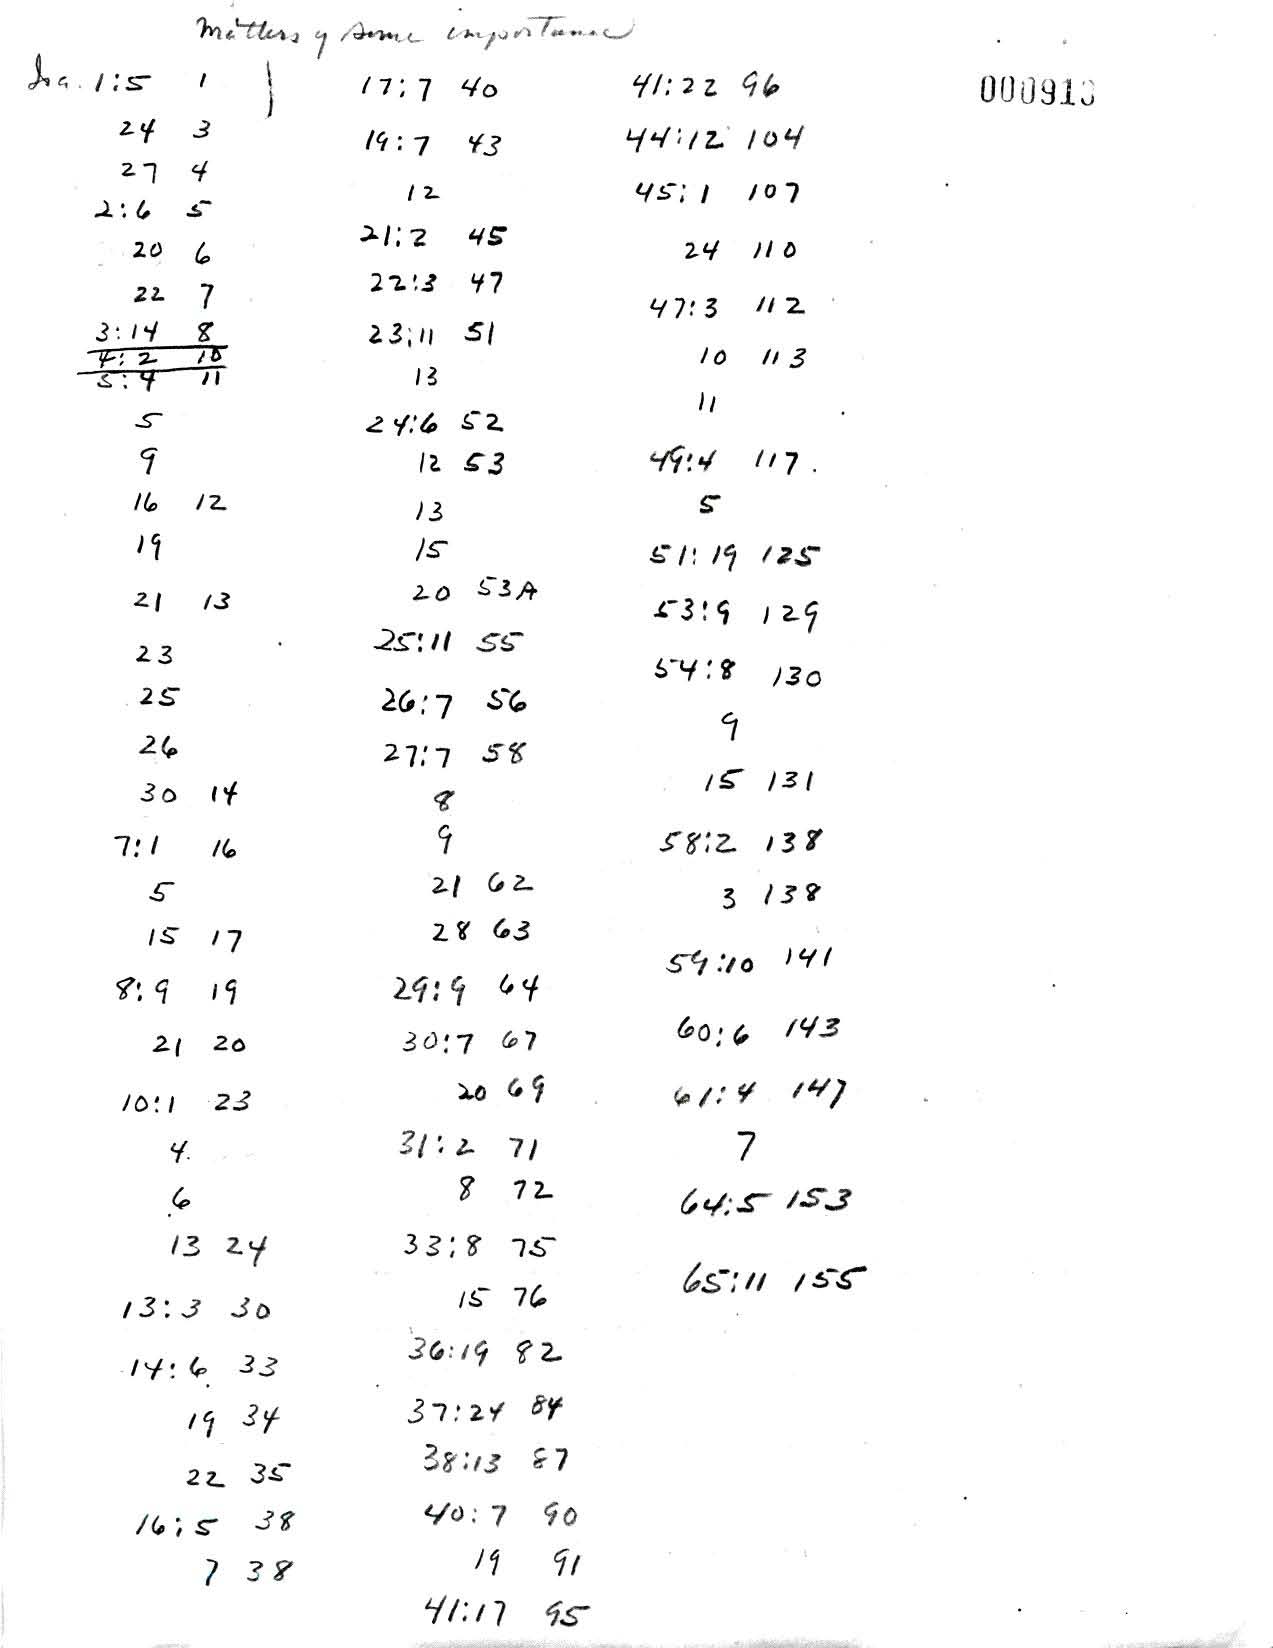 Matters of some importance
000913
Isa. 1:5 1
24 3
27 4
2:6 5
20 6
22 7
3:14 8
4:2 10
5:4 11
5
9
16 12
19
21 13
23
25
26
30 14
7:1 16
5
15 17
8:9 19
21 20
10:1 23
4.
6
13 24
13:3 30
14:6 33
19 34
22 35
16:5 38
7 38
17:7 40
19:7 43
12
21:2 45
22:3 47
23:11 51
13
24:6 52
12 53
13
15
20 53A
25:11 55
26:7 56
27:7 58
8
9
21 62
28 63
29:9 64
30:7 67
20 69
31:2 71
8 72
33:8 75
15 76
36:19 82
37:24 84
38:13 87
40:7 90
19 91
41:17 95
41:22 96
44:12 104
45:1 107
24 110
47:3 112
10 113
11
49:4 117.
5
51:19 125
53:9 129
54:8 130
9
15 131
58:2 138
3 138
59:10 141
60:6 143
61:4 147
7
64:5 153
65:11 155